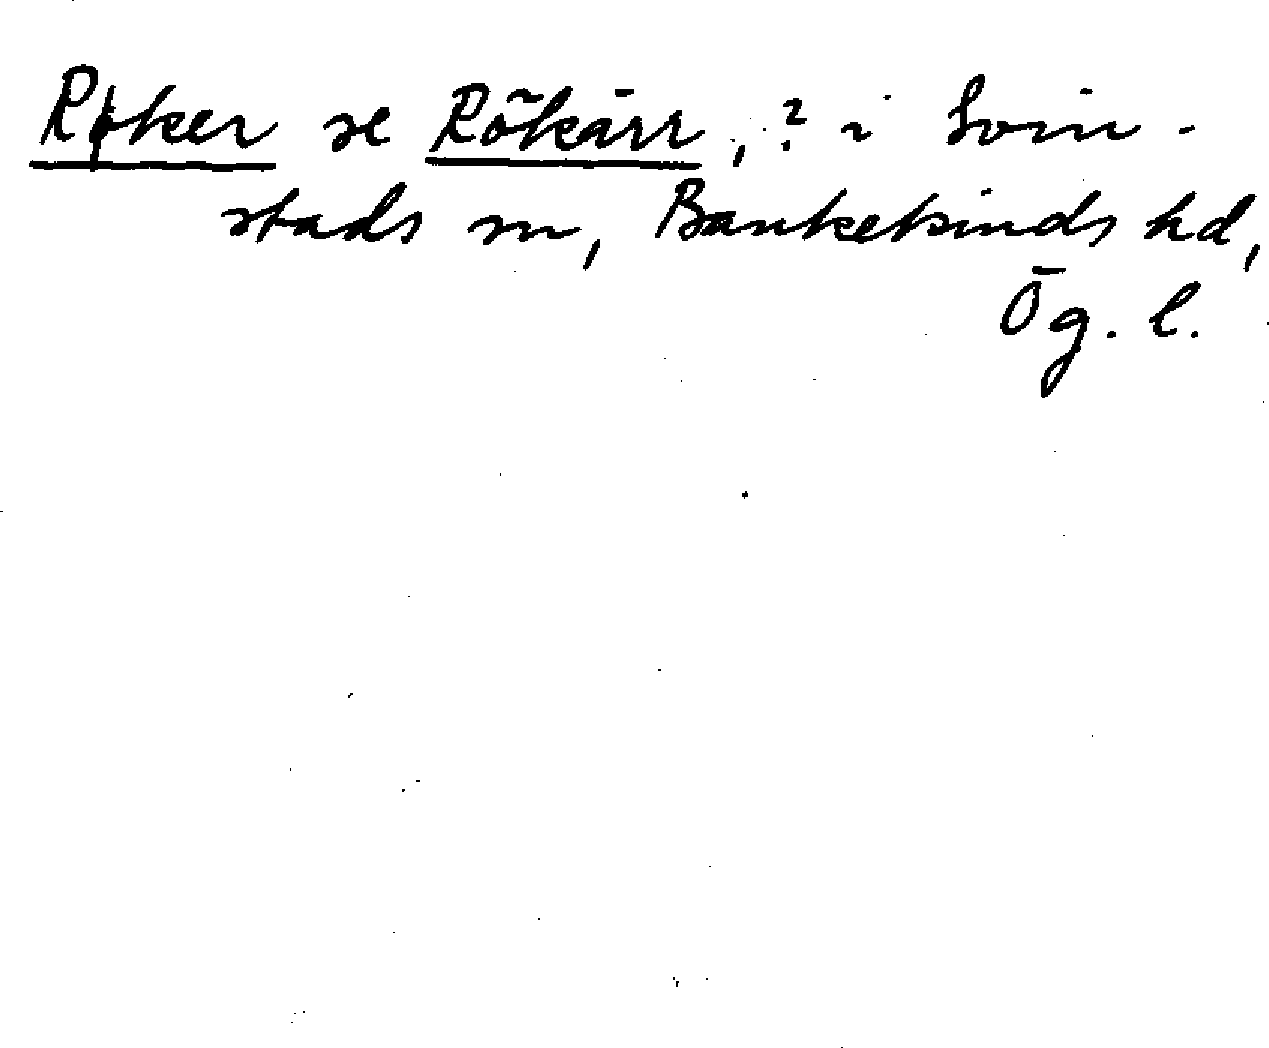 Røker se Rökärr, ? i Svin-
stads sn, Bankekinds hd,
Ög. l.